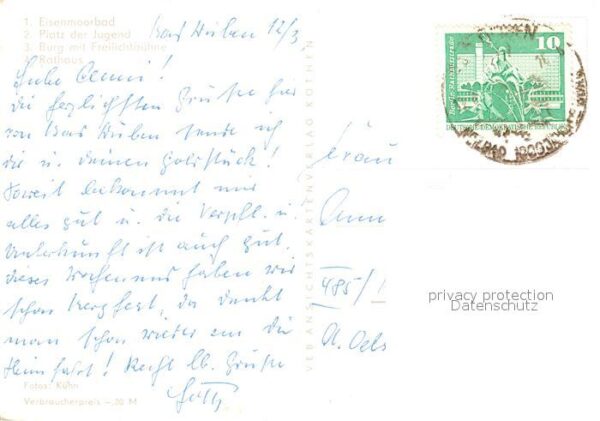 1. Eisenmoorbad
2 Platz der Jugend
3. Burg mit Freilichtbühne
4. Rathaus
Bad Düben 12/3
Liebe Aenni!
die herzlichsten Grüße hier
von Bad Düben sende ich
dir u. deinem Goldstück!
Soweit bekommt mir
alles gut u. die Verpfl. u.
Unterkunft ist auch gut.
dieses Wochenend haben wir
schon Bergfest, da denkt
man schon wieder an die
Heimfahrt! Recht lb. Grüße
Fotos: Kühn
Verbraucherpreis –,20 M
VEB ANSICHTSKARTENVERLAG KÖTHEN
10
Berlin Rathausstraße
DEUTSCHE DEMOKRATISCHE REPUBLIK
Frau
485/1
A. Oels
privacy protection
Datenschutz